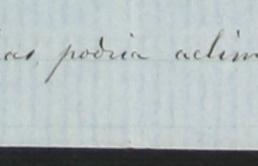 as, podria aclim